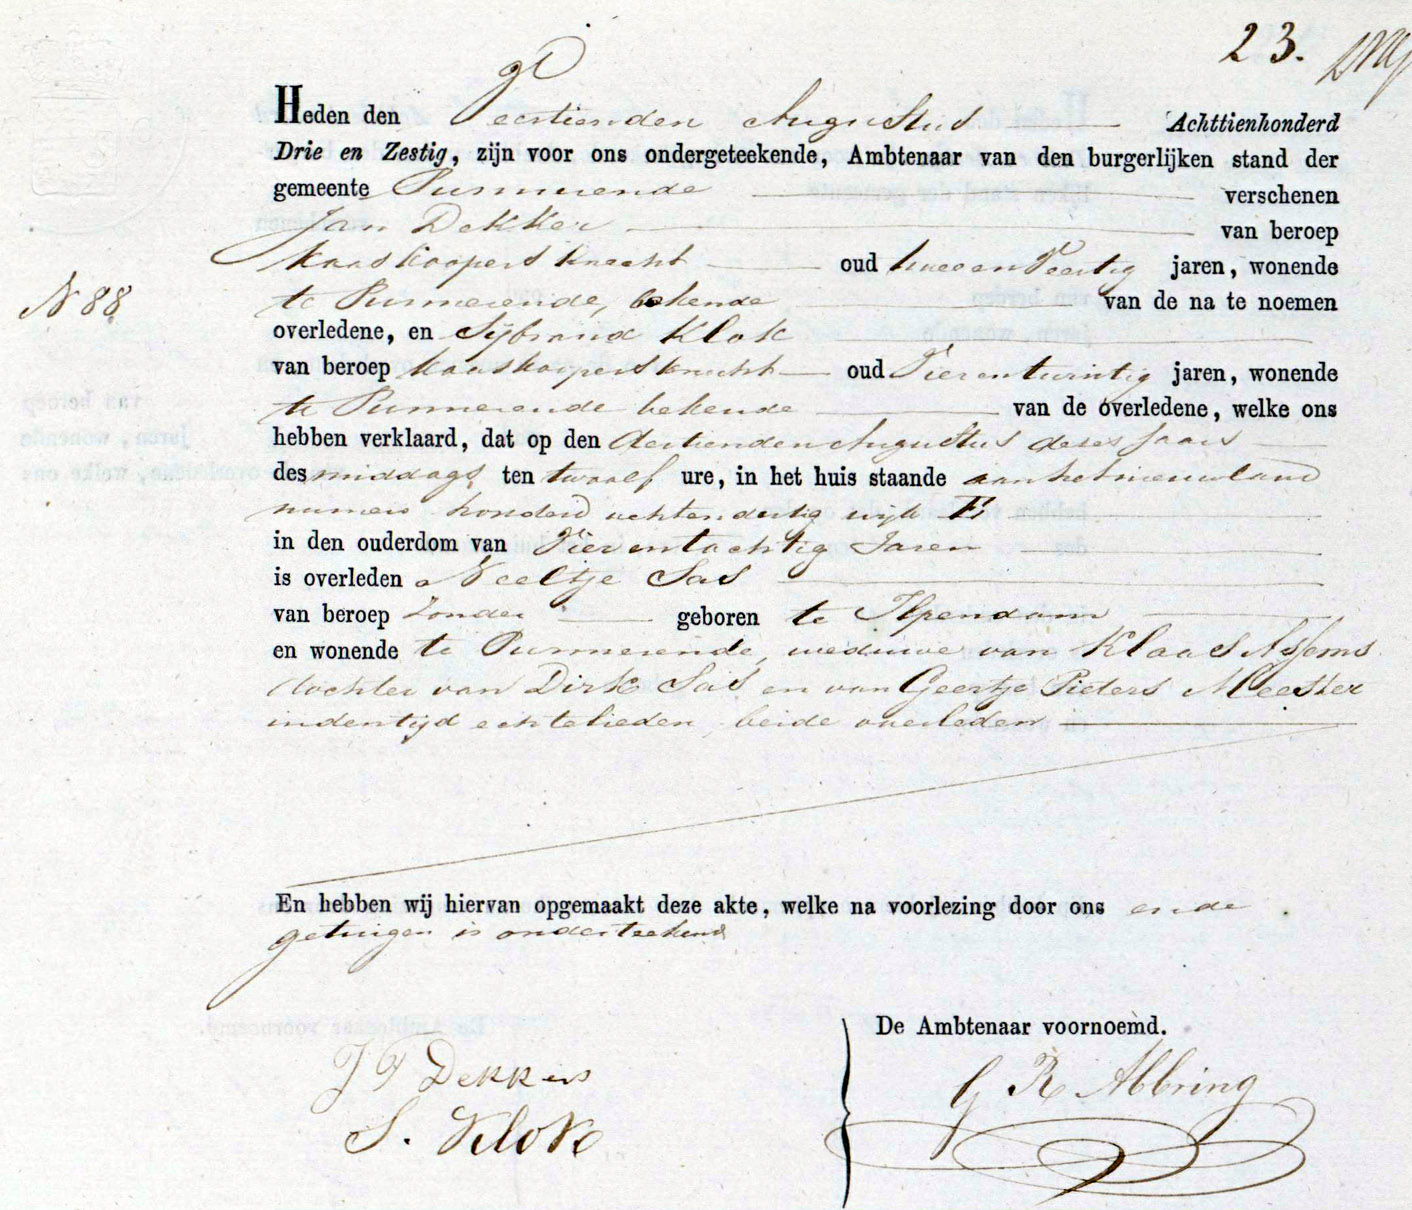 23.
Heden den Veertienden Augustus Achttienhonderd
Drie en Zestig, zijn voor ons ondergeteekende, Ambtenaar van den burgerlijken stand der
gemeente Purmerende verschenen
Jan Dekker van beroep
Kaaskoopers knecht oud twee en Veertig jaren, wonende
N 88
te Purmerende, bekende van de na te noemen
overledene, en Sijbrand Klok
van beroep Kaaskoopersknecht oud Vierentwintig jaren, wonende
te Purmerende bekende van de overledene, welke ons
hebben verklaard, dat op den dertienden Augustus dezes Jaars
des middags ten twaalf ure, in het huis staande aan het nieuwland
numero honderd achtendertig wijk E
in den ouderdom van Vierentachtig Jaren
is overleden Neeltje Sas
van beroep Zonder geboren te Ilpendam
en wonende te Purmerende, weduwe van Klaas
dochter van Dirk Sas en van Geertje Pieters Meester
indentijd echtelieden beide overleden
En hebben wij hiervan opgemaakt deze akte, welke na voorlezing door ons en de
getuigen is onderteekend
De Ambtenaar voornoemd.
J Dekker
G R Abbring
S. Klok